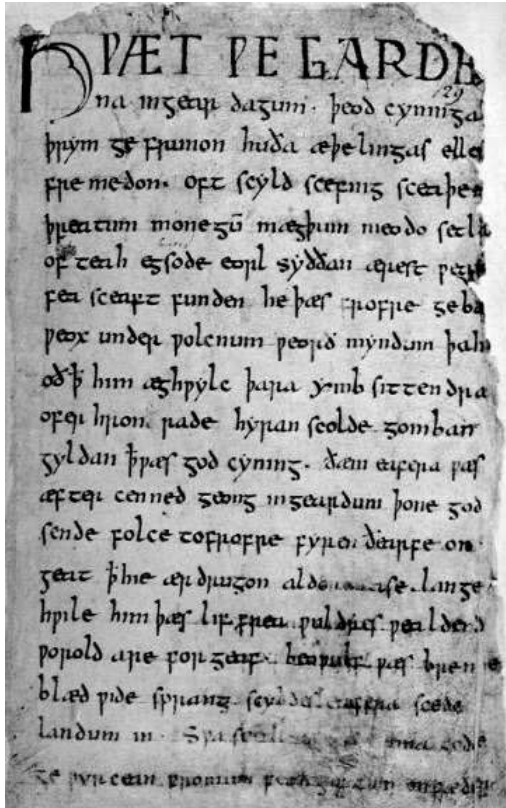 HǷÆT ǷE GARDE
129
na ingear dagum· þeod cyninga
þrym ge frunon huða æþelingas elle
fre medon· oft scyld scefing sceaþe
þreatum monegū mægþum meodo setla
of teah egsode eorl syððan ærest ƿear
fea sceaft funden he þæs frofre geba
ƿeox under ƿolcnum ƿeorð myndum þah
oð ꝥ him æghƿylc þara ymb sittendra
ofer hron rade hyran scolde gomban
gyldan ꝥ ƿæs god cyning· ðæm eafera ƿæs
æfter cenned geong ingeardum þone god
sende folce tofrofre fyren ðearfe on
geat ꝥ hie ær drugon lange
hƿile him þæs liffrea ƿuldres ƿealdend
ƿorold are for geaf· beoƿulf ƿæs breme
blæd ƿide sprang scyldes eafera scede
landum in· Sƿa gode
ge ƿyrcean fromum feoh giftum